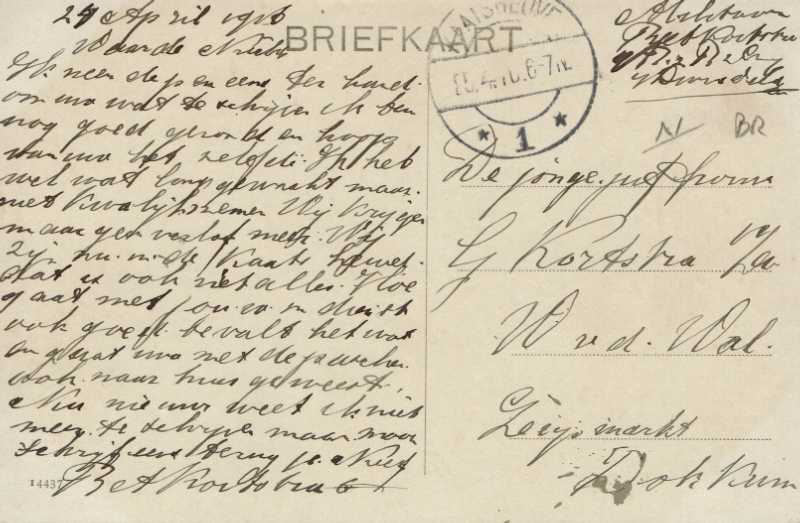 24 April 1916
BRIEFKAART
Waarde Nicht
Ik neem de pen eens ter hand
om uw wat te schrijven ik ben
nog goed gezond en hoop
van uw het zelfde. Ik heb
wel wat lang gewacht maar
niet kwalijk nemen Wij krijgen
maar geen verlof meer. Wij
zijn nu in de
dat is ook niet alles. Hoe
gaat met jou in dienst
ook goed bevalt het wat
en gaat uw met de
ook naar huis geweest.
Nu nieuws weet ik niet
meer te schrijven maar
schrijf eens terug je Neef
Bet Kortstra
14437
Militair
Bet Kortstra
1
De jonge juffrouw
G Kortstra
W v.d. Wal.
markt
Dokkum
NI
BR